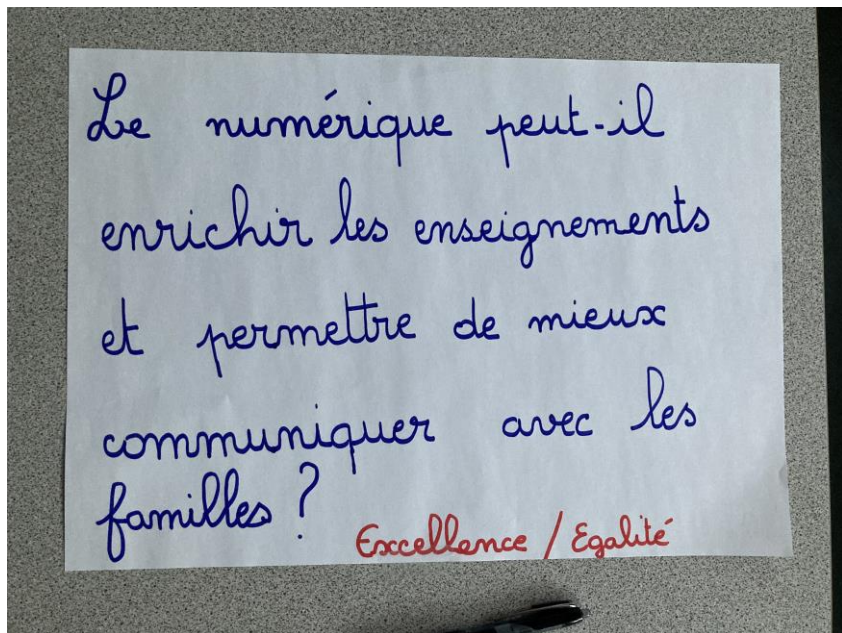 Le numérique peut-il
enrichir les enseignements
et permettre de mieux
communiquer avec les
familles ?
Excellence / Egalité